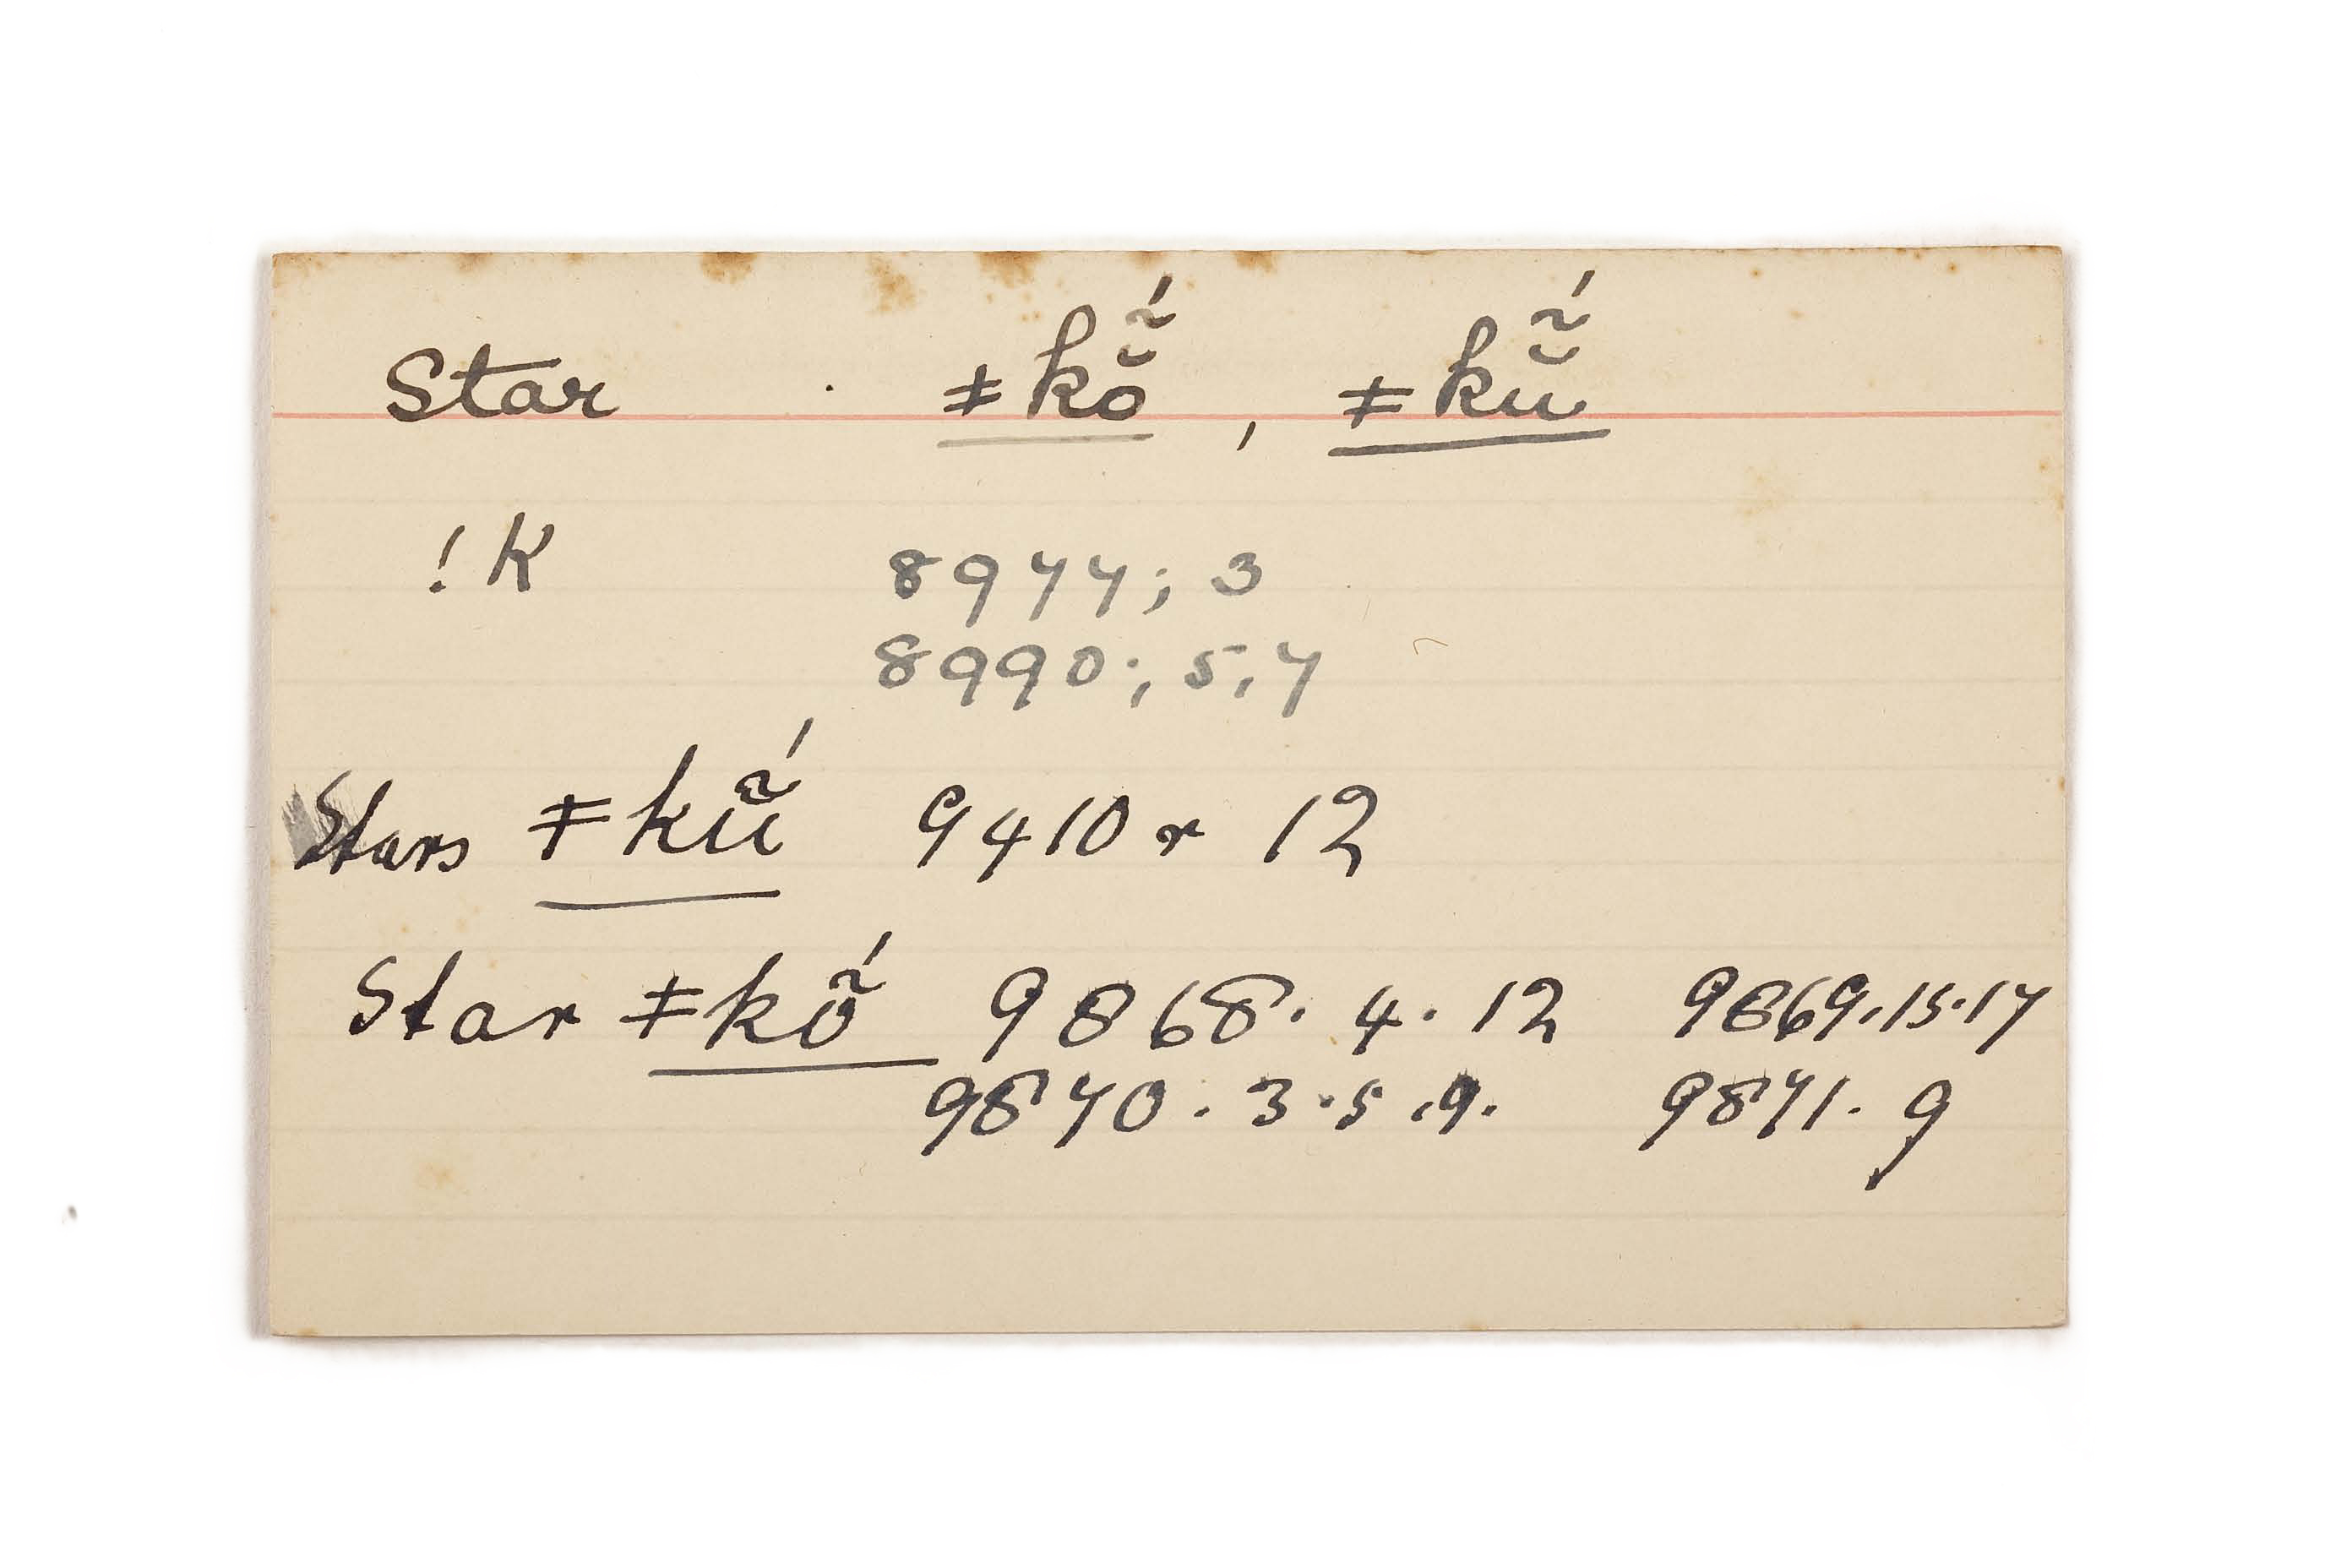 Star . ǂkŏ̃́, ǂkŭ̃́
!K 8977; 3
8990; 5, 7
Stars ǂkŭ̃́ 9410 r 12
Star ǂkŏ̃́ 9868. 4. 12 9869. 15. 17
9870. 3. 5. 9. 9871. 9